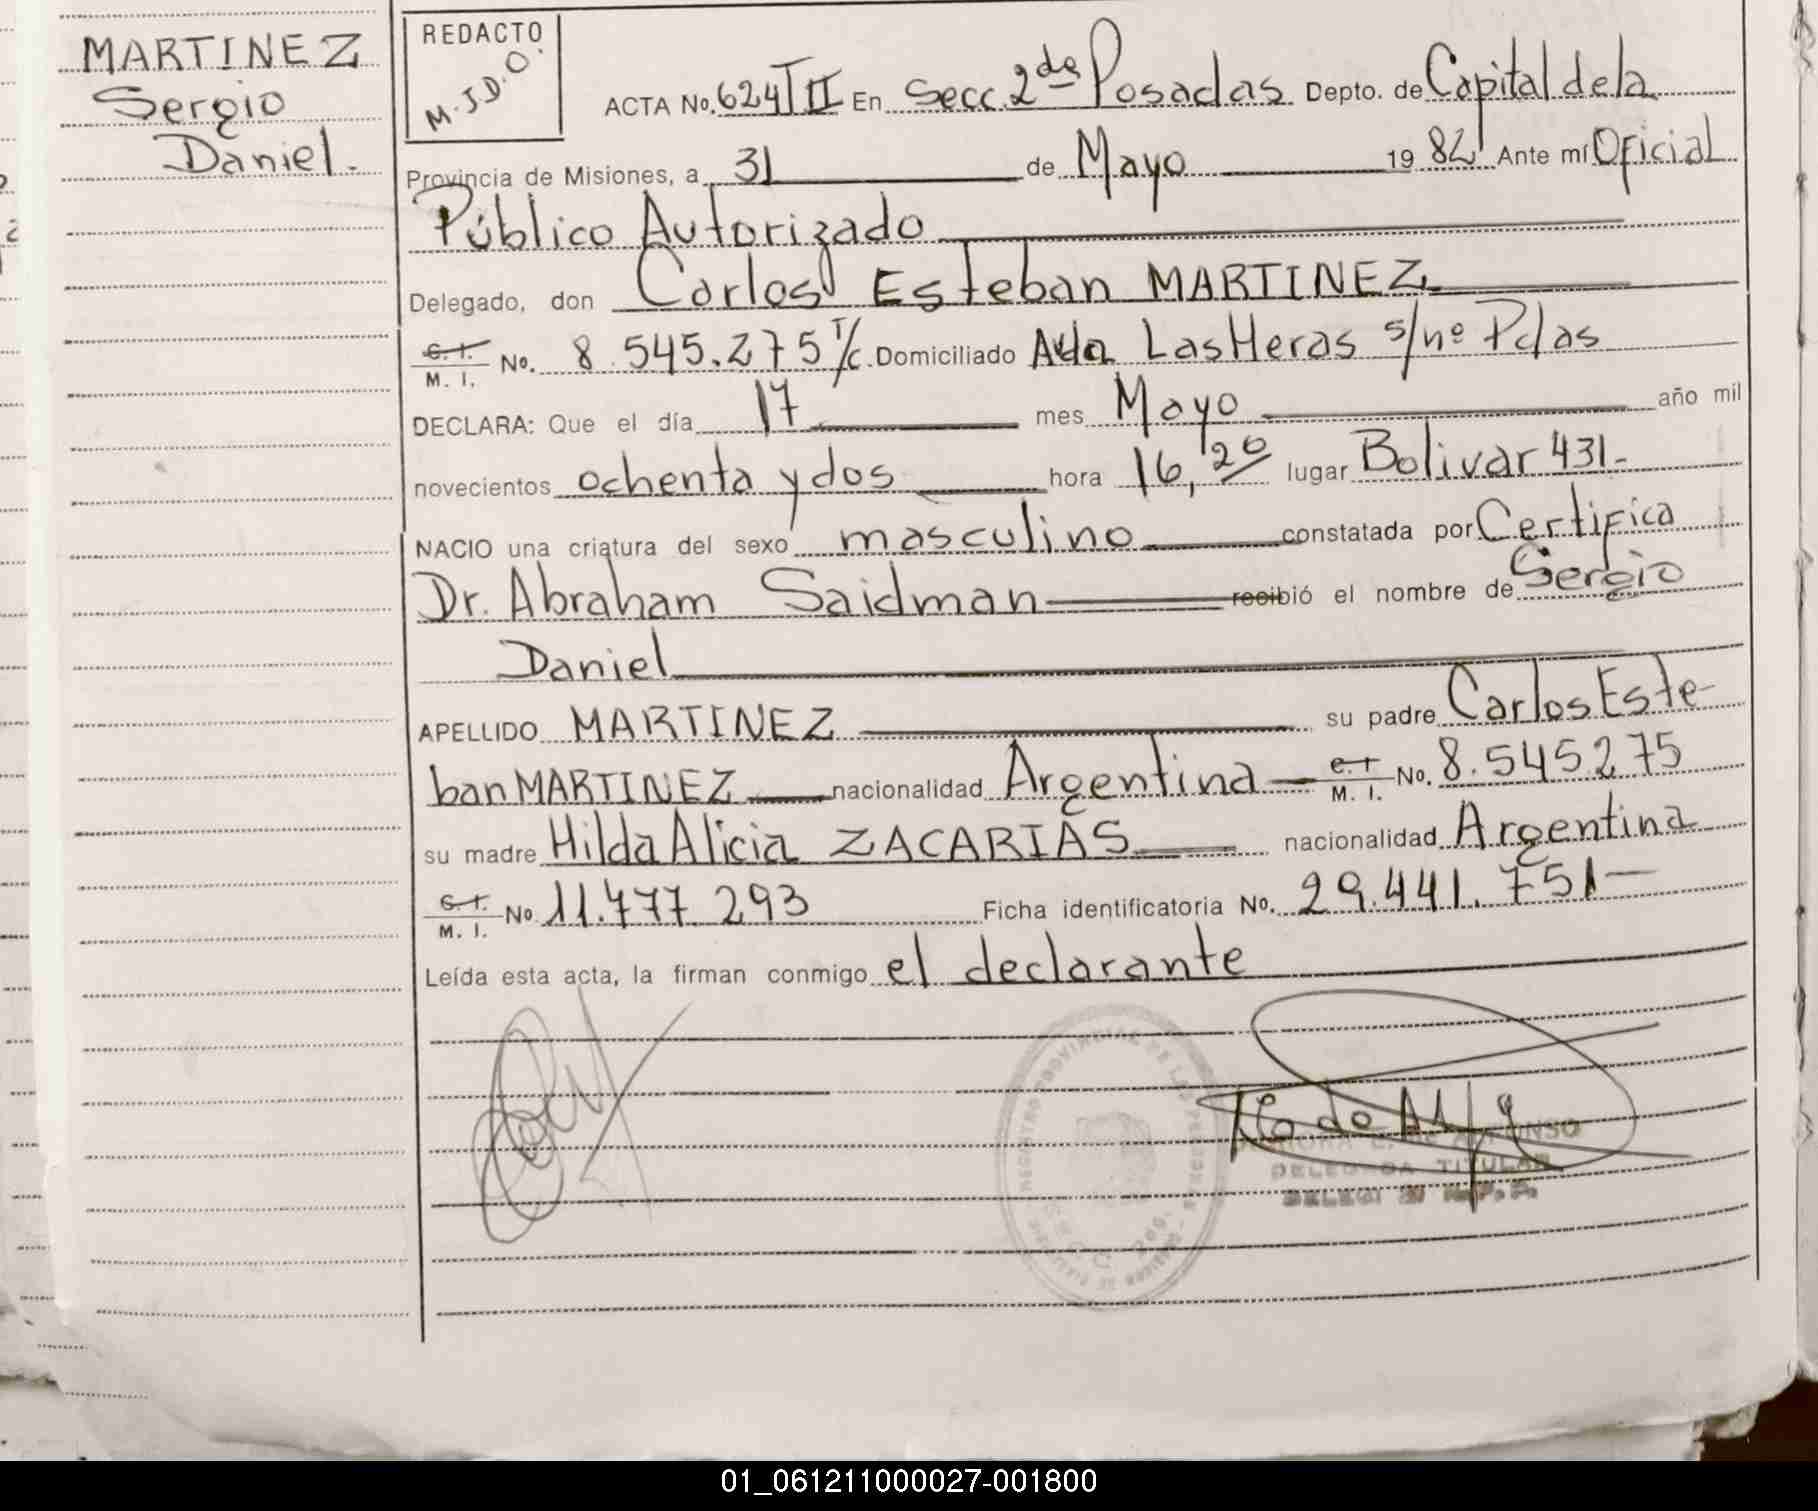 MARTINEZ
Sergio
Daniel.
REDACTO
M.J.D.O.
ACTA No. 624 T II En Secc. 2da Posadas Depto. de Capital de la
Provincia de Misiones, a 31 de Mayo 1982 Ante mí Oficial
Público Autorizado
Delegado, don Carlos Esteban MARTINEZ
C.I. M.I. No. 8.545.275 T/C. Domiciliado Avda Las Heras s/nº Pdas
DECLARA: Que el día 17 mes Mayo año mil
novecientos ochenta y dos hora 16,20 lugar Bolivar 431-
NACIO una criatura del sexo masculino constatada por Certifica
Dr. Abraham Saidman recibió el nombre de Sergio
Daniel
APELLIDO MARTINEZ su padre Carlos Este-
ban MARTINEZ nacionalidad Argentina C.I. M.I. No. 8.545.275
su madre Hilda Alicia ZACARIAS nacionalidad Argentina
C.I. M.I. No 11.477.293 Ficha identificatoria No. 29.441.751-
Leída esta acta, la firman conmigo el declarante
DELEGADA TITULAR
01_061211000027-001800